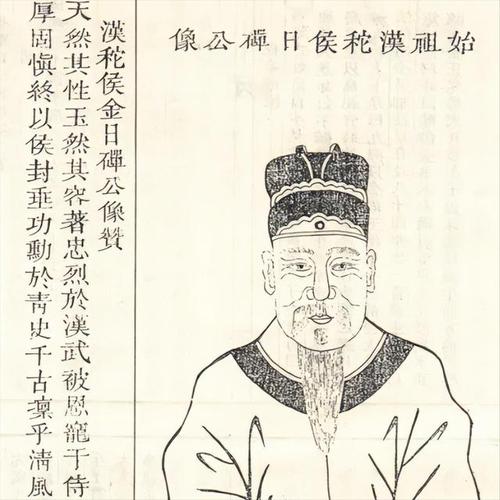 始祖漢秺侯日磾公像
漢秺侯金日磾公像贊
天然其性玉然其容著忠烈於漢武被恩寵于侍
厚固愼終以侯封垂功勳於靑史千古凜乎淸風